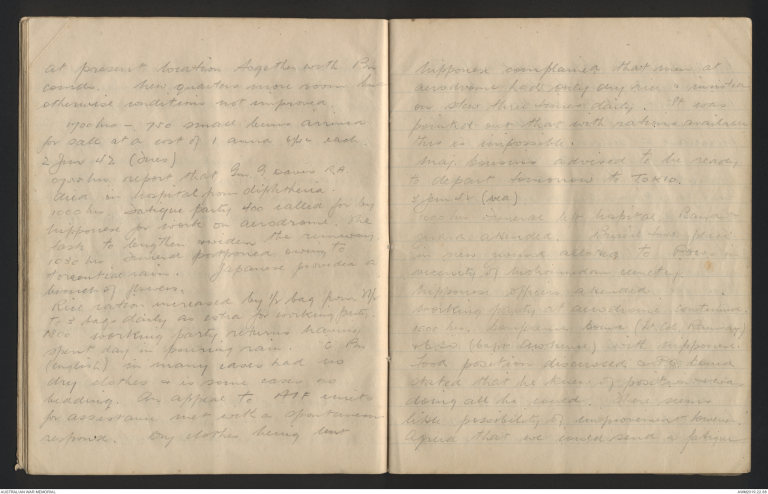 at present location together with Bn
comds. New quarters more room but
otherwise conditions not improved.
1700 hrs - 750 small buns arrived
for sale at a cost of 1 anna each.
2 Jun 42 (Tues)
hrs. report that Gnr. R.A.
died in hospital from diphtheria.
1000 hrs. Fatigue party 400 called for by
Nipponese for work on aerodrome, the
task to lengthen & widen the runway.
1030 hrs funeral postponed owing to
torrential rain. Japanese provided a
bunch of flowers.
Rice ration increased by ½ bag from 2½
to 3 bags daily as extra for working party.
1800 working party returns having
spent day in pouring rain. C Bn
(English) in many cases had no
dry clothes & in some cases no
bedding. An appeal to AIF units
for assistance met with a spontaneous
response. Dry clothes being lent
Nipponese complained that men at
aerodrome had only dry rice &
on slew three times daily. It was
pointed out that with rations available
this is impossible.
Maj. advised to be ready
to depart tomorrow to TOKIO.
3 Jun 42 (Wed)
1000 hrs funeral left hospital. Band &
guard attended. Burial took place
in new allotted to in
vicinity of Mohamedan cemetery.
Nipponese officers attended.
Working party at aerodrome continued.
1600 hrs. (Lt Col. Ramsay)
visited (Capt. ) with Nipponese.
Food position discussed and
stated that he knew of position & was
doing all he could. There seems
little possibility of improvement however.
Agreed that we could send a fatigue
AUSTRALIAN WAR MEMORIAL